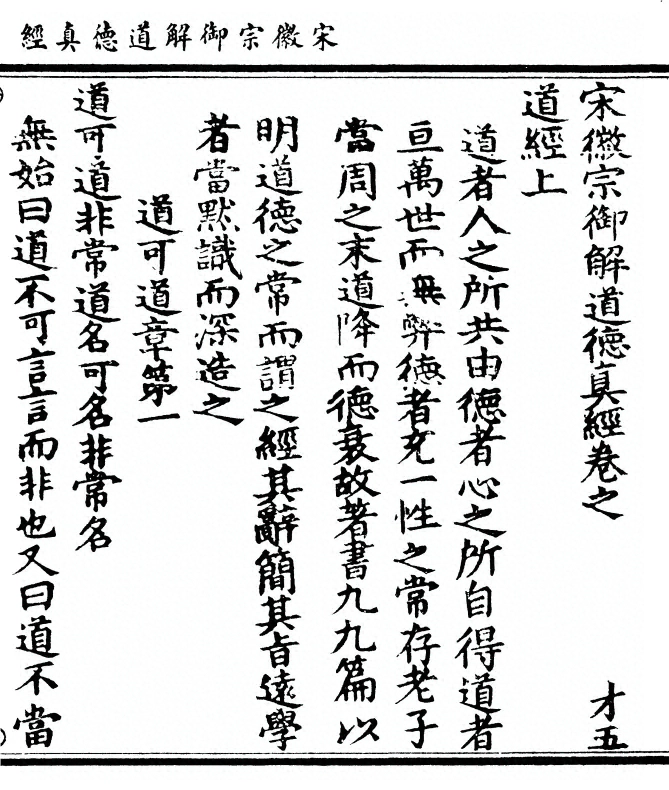 宋徽宗御解道德真經
宋徽宗御解道德真經卷之　才五
道經上
道者人之所共由德者心之所自得道者
亘萬世而無弊德者充一性之常存老子
當周之末道降而德衰故著書九九篇以
明道德之常而謂之經其辭簡其旨遠學
者當默識而深造之
道可道章第一
道可道非常道名可名非常名
無始曰道不可言言而非也又曰道不當